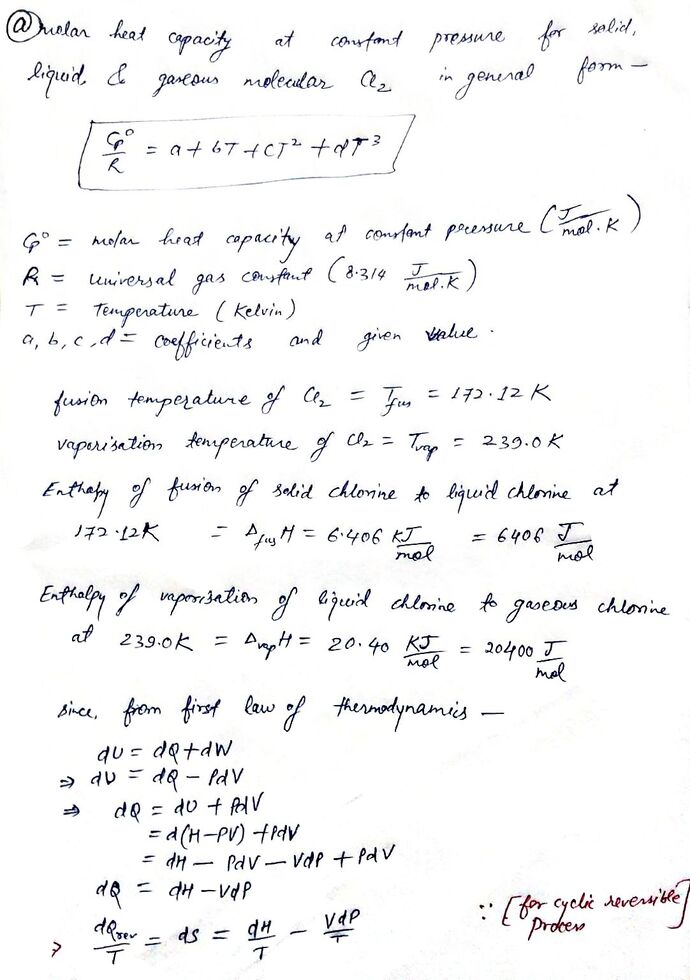 ⓐ molar heat capacity at constant pressure for solid,
liquid & gaseous molecular Cl₂ in general form —
Cp°/R = a + bT + cT² + dT³
Cp° = molar heat capacity at constant pressure (J/mol.K)
R = universal gas constant (8.314 J/mol.K)
T = Temperature (Kelvin)
a, b, c, d = coefficients and given value.
fusion temperature of Cl₂ = Tfus = 172.12 K
vaporisation temperature of Cl₂ = Tvap = 239.0 K
Enthalpy of fusion of solid chlorine to liquid chlorine at
172.12K = ΔfusH = 6.406 KJ/mol = 6406 J/mol
Enthalpy of vaporisation of liquid chlorine to gaseous chlorine
at 239.0K = ΔvapH = 20.40 KJ/mol = 20400 J/mol
since, from first law of thermodynamics —
dU = dQ + dW
⇒ dU = dQ – PdV
⇒ dQ = dU + PdV
= d(H–PV) + PdV
= dH – PdV – VdP + PdV
dQ = dH – VdP
⇒ dQrev/T = dS = dH/T – VdP/T ∵ [for cyclic reversible
process]